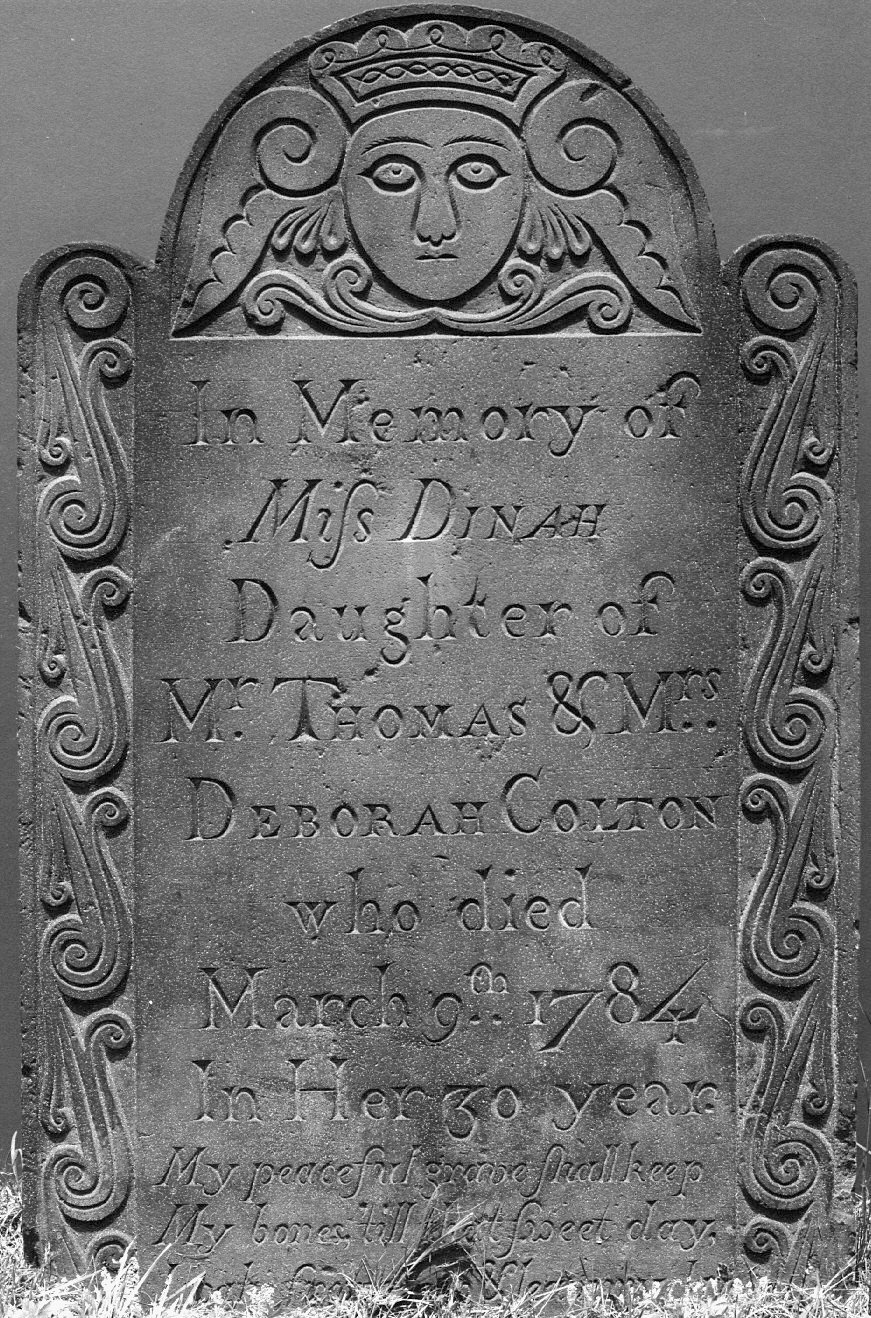 In Memory of
Miſs DINAH
Daughter of
Mr. THOMAS & Mrs.
DEBORAH COLTON
who died
March 9th. 1784
In Her 30 year.
My peaceful grave ſhall keep
My bones, till that ſweet day,